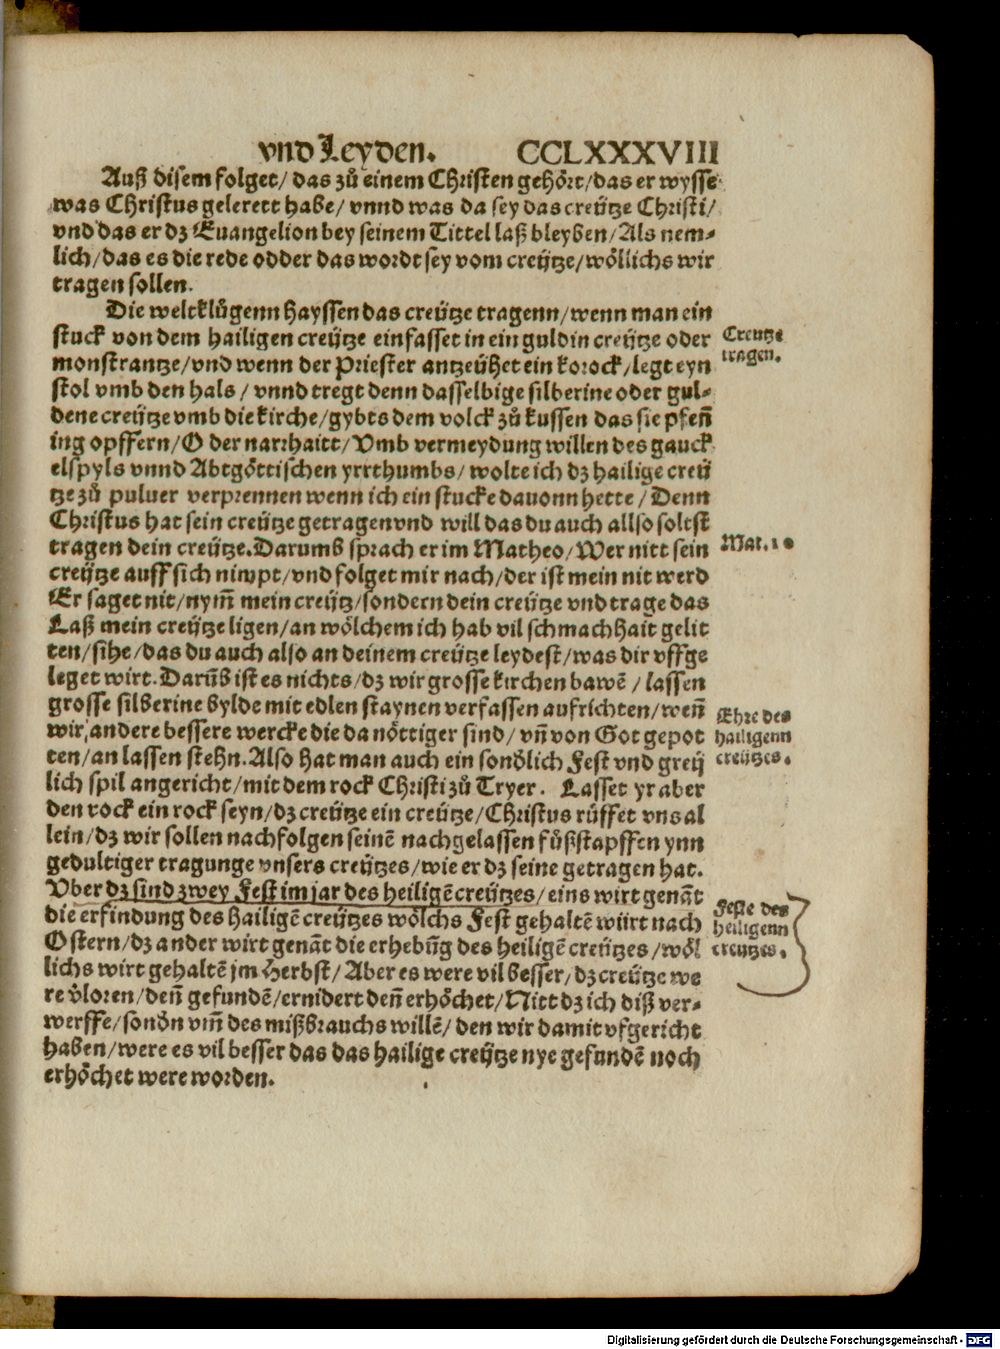 vnd Leyden. CCLXXXVIII
Auß disem folget/ das zů einem Christen gehört/das er wysse
was Christus gelerett habe/ vnnd was da sey das creütze Christi/
vnd das er dz Euangelion bey seinem Tittel laß bleyben/Als nem-
lich/das es die rede odder das wordt sey vom creütze/wöllichs wir
tragen sollen.
Die weltklůgenn hayssen das creütze tragenn/wenn man ein
stuck von dem hailigen creütze einfasset in ein guldin creütze oder
monstrantze/vnd wenn der Priester antzeühet ein korock/legt eyn
stol vmb den hals/ vnnd tregt denn dasselbige silberine oder gul-
dene creütze vmb die kirche/gybts dem volck zů kussen das sie pfeñ
ing opffern/O der narrhaitt/Vmb vermeydung willen des gauck
elspyls vnnd Abtgöttischen yrrthumbs/ wolte ich dz hailige creü
tze zů puluer verprennen wenn ich ein stucke dauonn hette/Denn
Christus hat sein creütze getragen vnd will das du auch allso solst
tragen dein creütze.Darumb sprach er im Matheo/Wer nitt sein
creütze auff sich nimpt/vnd folget mir nach/der ist mein nit werd
Er saget nit/nym̃ mein creütz/sondern dein creütze vnd trage das
Laß mein creütze ligen/an wölchem ich hab vil schmachhait gelit
ten/sihe/das du auch also an deinem creütze leydest/was dir vffge
leget wirt.Darũb ist es nichts/dz wir grosse kirchen bawẽ / lassen
grosse silberine bylde mit edlen staynen verfassen auffrichten/weñ
wir, andere bessere wercke die da nöttiger sind/ vñ von Got gepot
ten/an lassen stehn.Also hat man auch ein sonďlich Fest vnd greü
lich spil angericht/mit dem rock Christi zů Tryer. Lasset yr aber
den rock ein rock seyn/dz creütze ein creütze/Christus růffet vns al
lein/dz wir sollen nachfolgen seinẽ nachgelassen fůßstapffen ynn
gedultiger tragunge vnsers creützes/wie er dz seine getragen hat.
Vber dz sind zwey Fest im jar des heiligẽ creützes/eins wirt genãt
die erfindung des hailigẽ creützes wölchs Fest gehaltẽ würt nach
Ostern/dz ander wirt genãt die erhebũg des heiligẽ creützes/wöl
lichs wirt gehaltẽ jm Herbst/Aber es were vil besser/dz creütze we
re v̈loren/deñ gefundẽ/ernidert deñ erhöchet/Nitt dz ich diß ver-
werffe/sonďn vm̃ des mißbrauchs willẽ/ den wir damit vfgericht
haben/were es vil besser das das hailige creütze nye gefundẽ noch
erhöchet were worden.
Creutze
tragen.
Mat.10
Ehre des
hailigenn
creützes.
Feste des
heiligenn
creutzes.
Digitalisierung gefördert durch die Deutsche Forschungsgemeinschaft - DFG